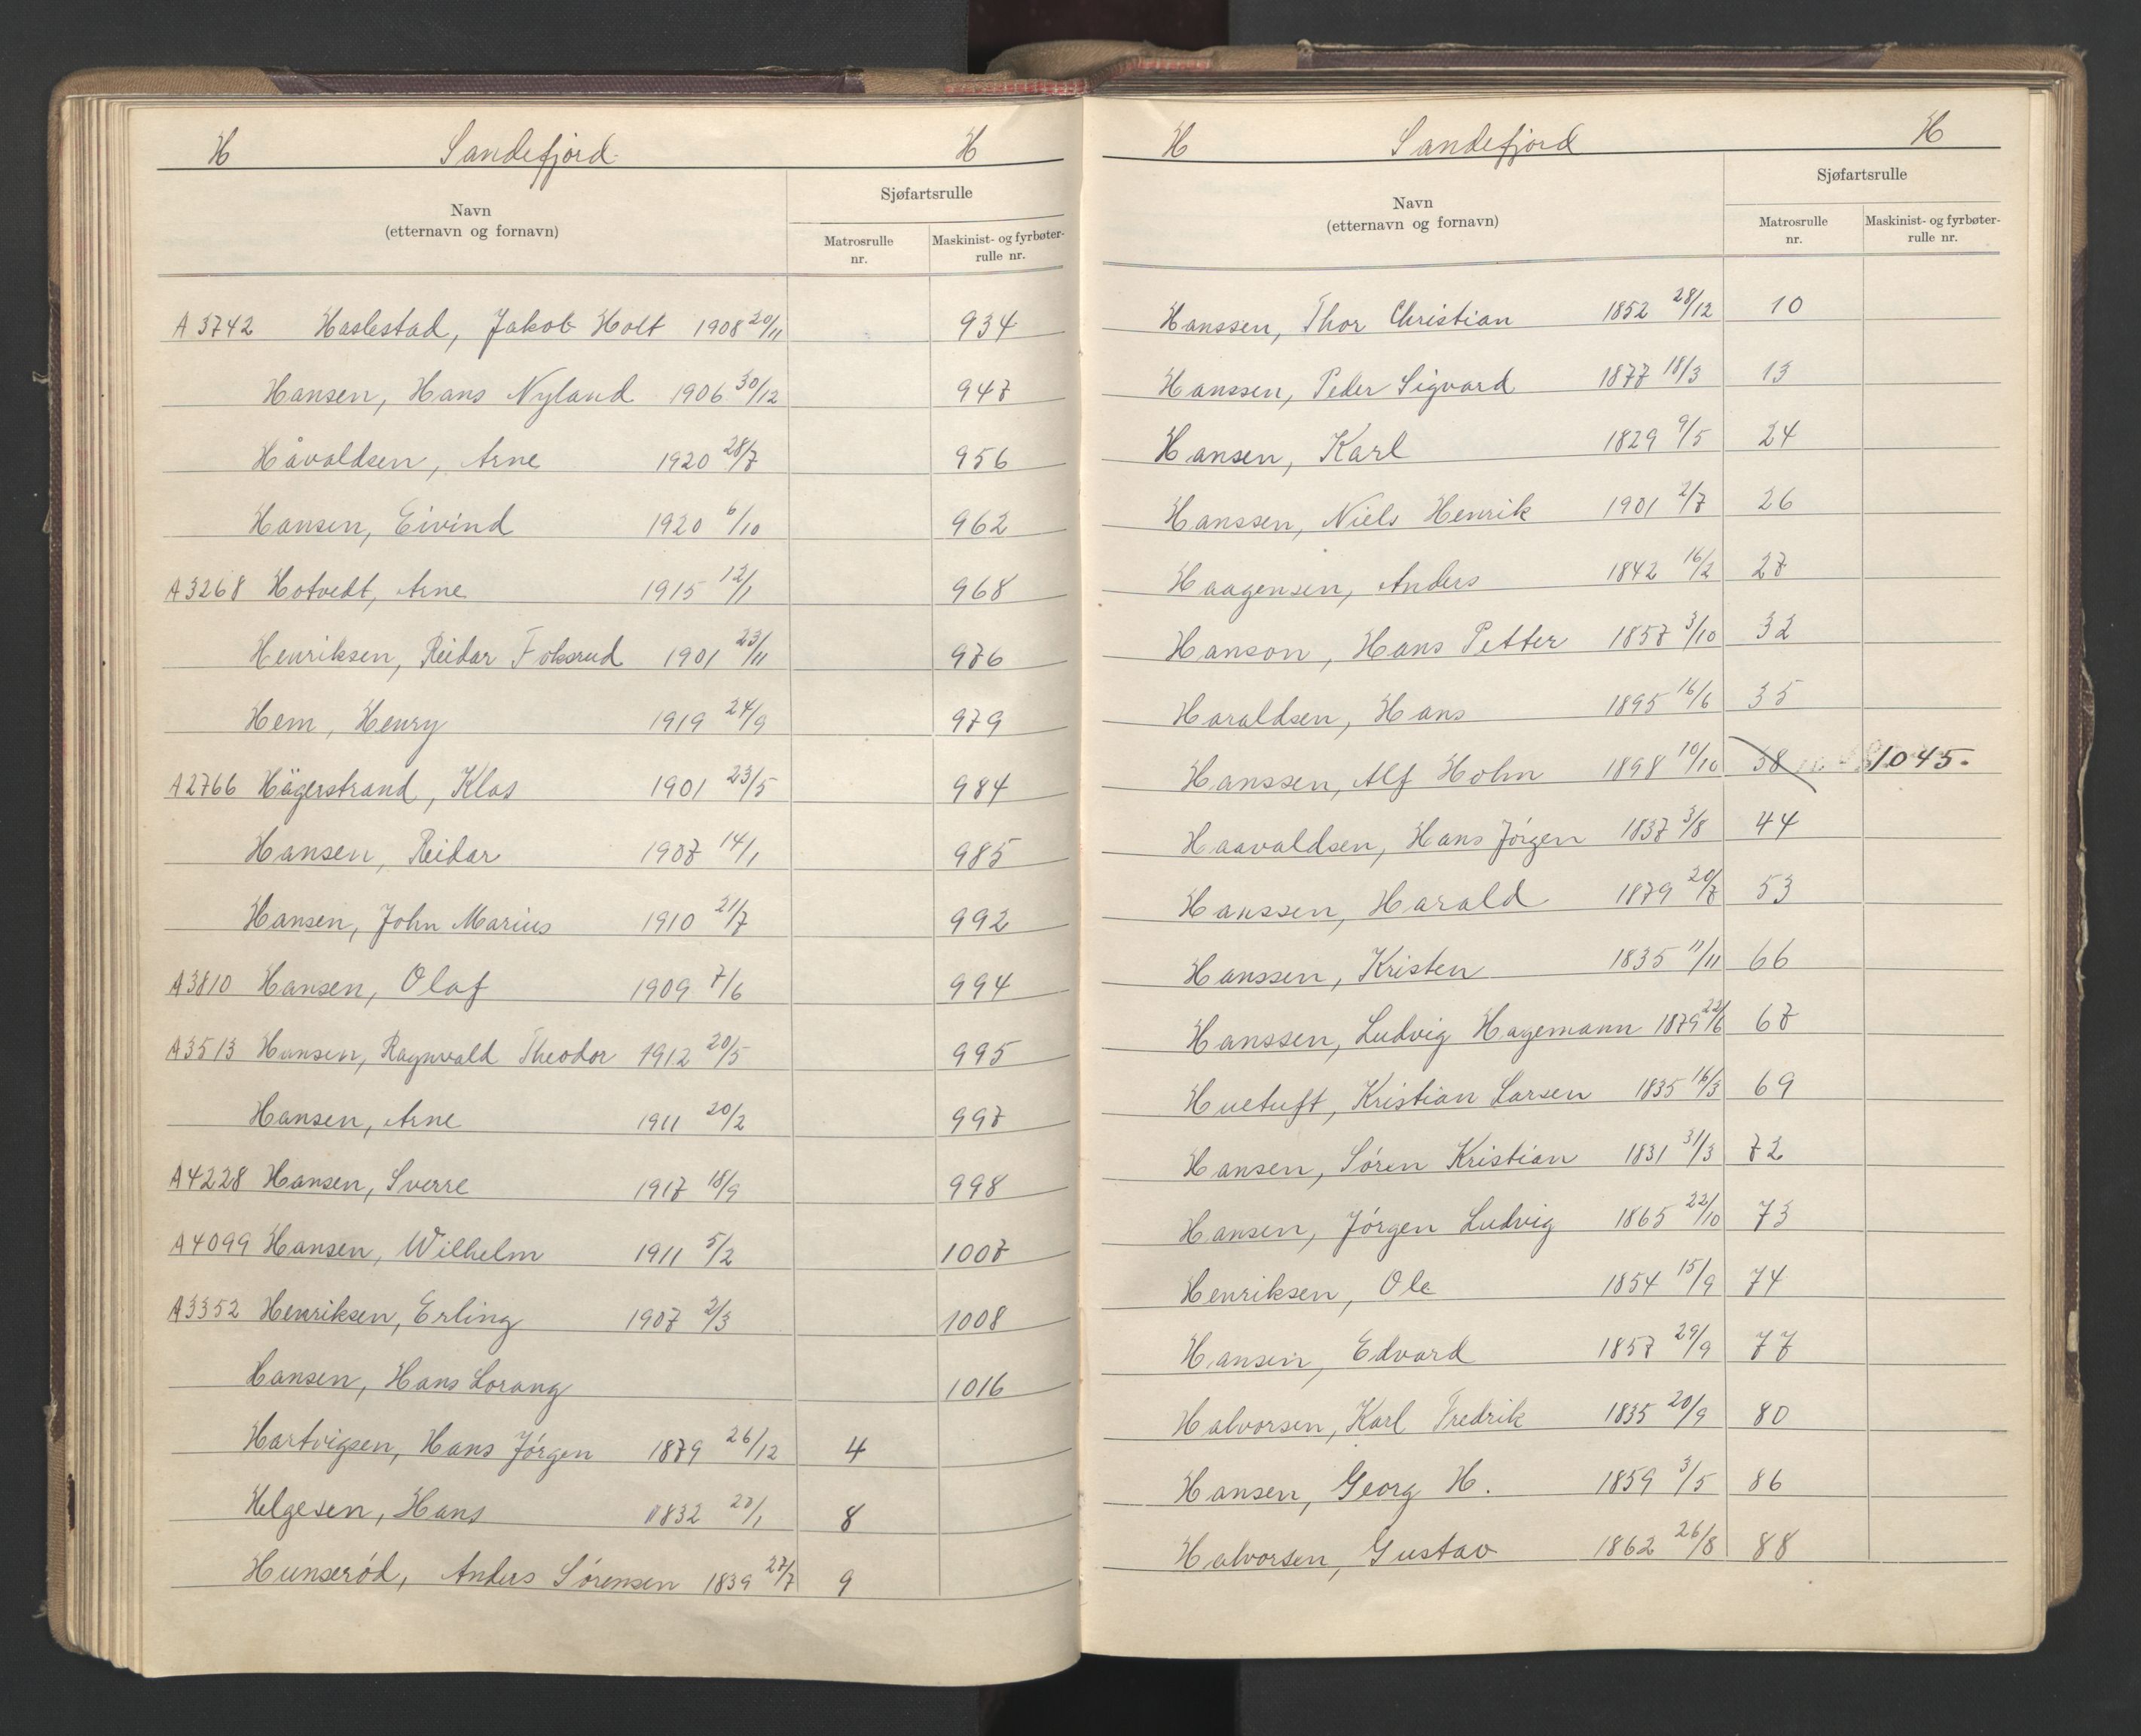 H Sandefjord H
Navn
(etternavn og fornavn)
Sjøfartsrulle
Matrosrulle nr.
Maskinist- og fyrbøter-rulle nr.
A 3742 Haslestad, Jakob Holt 1908 20/11 934
Hansen, Hans Nyland 1906 30/12 947
Håvaldsen, Arne 1920 28/7 956
Hansen, Eivind 1920 6/10 962
A3268 Hotvedt, Arne 1915 12/1 968
Henriksen, Reidar Foksrud 1901 23/11 976
Hem, Henry 1919 24/9 979
A2766 Hägerstrand, Klas 1901 23/5 984
Hansen, Reidar 1907 14/1 985
Hansen, John Marius 1910 21/7 992
A3810 Hansen, Olaf 1909 7/6 994
A3513 Hansen, Ragnvald Theodor 1912 20/5 995
Hansen, Arne 1911 20/2 997
A4228 Hansen, Sverre 1917 18/9 998
A4099 Hansen, Wilhelm 1911 5/2 1007
A3352 Henriksen, Erling 1907 2/3 1008
Hansen, Hans Lorang 1016
Hartvigsen, Hans Jörgen 1879 26/12 4
Helgesen, Hans 1832 20/1 8
Hunseröd, Anders Sörensen 1839 27/7 9
H Sandefjord H
Navn
(etternavn og fornavn)
Sjøfartsrulle
Matrosrulle nr.
Maskinist- og fyrbøter-rulle nr.
Hanssen, Thor Christian 1852 28/12 10
Hanssen, Peder Sigvard 1877 18/3 13
Hansen, Karl 1829 9/5 24
Hanssen, Niels Henrik 1901 2/7 26
Haagensen, Anders 1842 16/2 27
Hanson, Hans Petter 1857 3/10 32
Haraldsen, Hans 1895 16/6 35
Hanssen, Alf Holm 1898 10/10 38 1045.
Haavaldsen, Hans Jörgen 1837 3/8 44
Hanssen, Harald 1879 20/7 53
Hanssen, Kristen 1835 11/11 66
Hanssen, Ludvig Hagemann 1879 22/6 67
Huetuft, Kristian Larsen 1835 16/3 69
Hansen, Sören Kristian 1831 31/3 72
Hansen, Jörgen Ludvig 1865 22/10 73
Henriksen, Ole 1854 15/9 74
Hansen, Edvard 1857 29/9 77
Halvorsen, Karl Fredrik 1835 20/9 80
Hansen, Georg H. 1859 3/5 86
Halvorsen, Gustav 1862 26/8 88